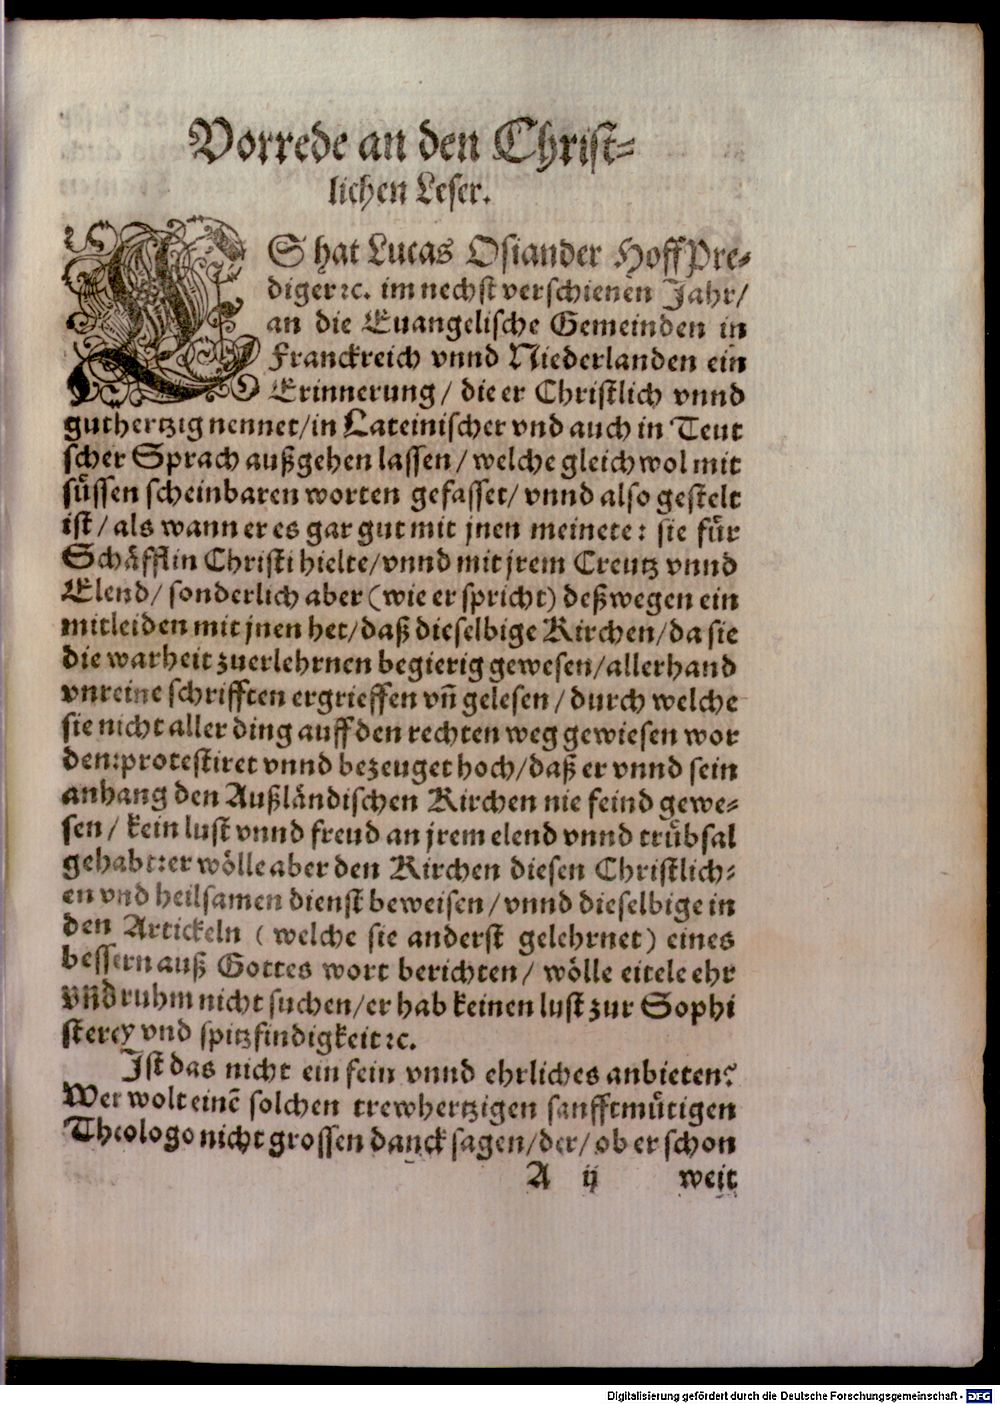 Vorrede an den Christ-
lichen Leser.
ES hat Lucas Osiander HoffPre-
diger ꝛc. im nechst verschienen Jahr/
an die Euangelische Gemeinden in
Franckreich vnnd Niederlanden ein
Erinnerung / die er Christlich vnnd
guthertzig nennet/in Lateinischer vnd auch in Teut
scher Sprach außgehen lassen / welche gleichwol mit
süssen scheinbaren worten gefasset/ vnnd also gestelt
ist / als wann er es gar gut mit jnen meinete: sie für
Schäfflin Christi hielte/vnnd mit jrem Creutz vnnd
Elend/ sonderlich aber (wie er spricht) deßwegen ein
mitleiden mit jnen het/daß dieselbige Kirchen/da sie
die warheit zuerlehrnen begierig gewesen/allerhand
vnreine schrifften ergrieffen vñ gelesen / durch welche
sie nicht aller ding auff den rechten weg gewiesen wor
den:protestiret vnnd bezeuget hoch/daß er vnnd sein
anhang den Außländischen Kirchen nie feind gewe-
sen / kein lust vnnd freud an jrem elend vnnd trübsal
gehabt:er wölle aber den Kirchen diesen Christlich-
en vnd heilsamen dienst beweisen / vnnd dieselbige in
den Artickeln ( welche sie anderst gelehrnet) eines
bessern auß Gottes wort berichten / wölle eitele ehr
vnd ruhm nicht suchen/er hab keinen lust zur Sophi
sterey vnd spitzfindigkeit ꝛc.
Ist das nicht ein fein vnnd ehrliches anbieten?
Wer wolt einẽ solchen trewhertzigen sanfftmütigen
Theologo nicht grossen danck sagen/der/ ob er schon
A ij weit
Digitalisierung gefördert durch die Deutsche Forschungsgemeinschaft - DFG